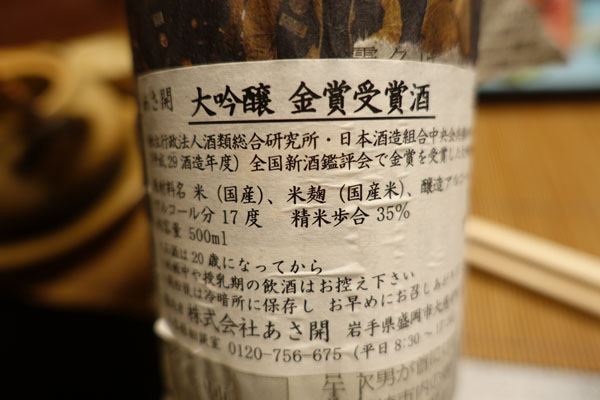 あさ開 大吟醸 金賞受賞酒
立行政法人酒類総合研究所・日本酒造組合中央会共
平成29酒造年度) 全国新酒鑑評会で金賞を受賞した
材料名 米(国産)、米麹(国産米)、醸造アルコ
アルコール分17度 精米歩合35%
容量 500ml
お酒は20歳になってから
や授乳期の飲酒はお控え下さい
は冷暗所に保存し お早めにお召しあ
株式会社あさ開 岩手県盛岡市大
談室 0120-756-675 (平日8:30～17: